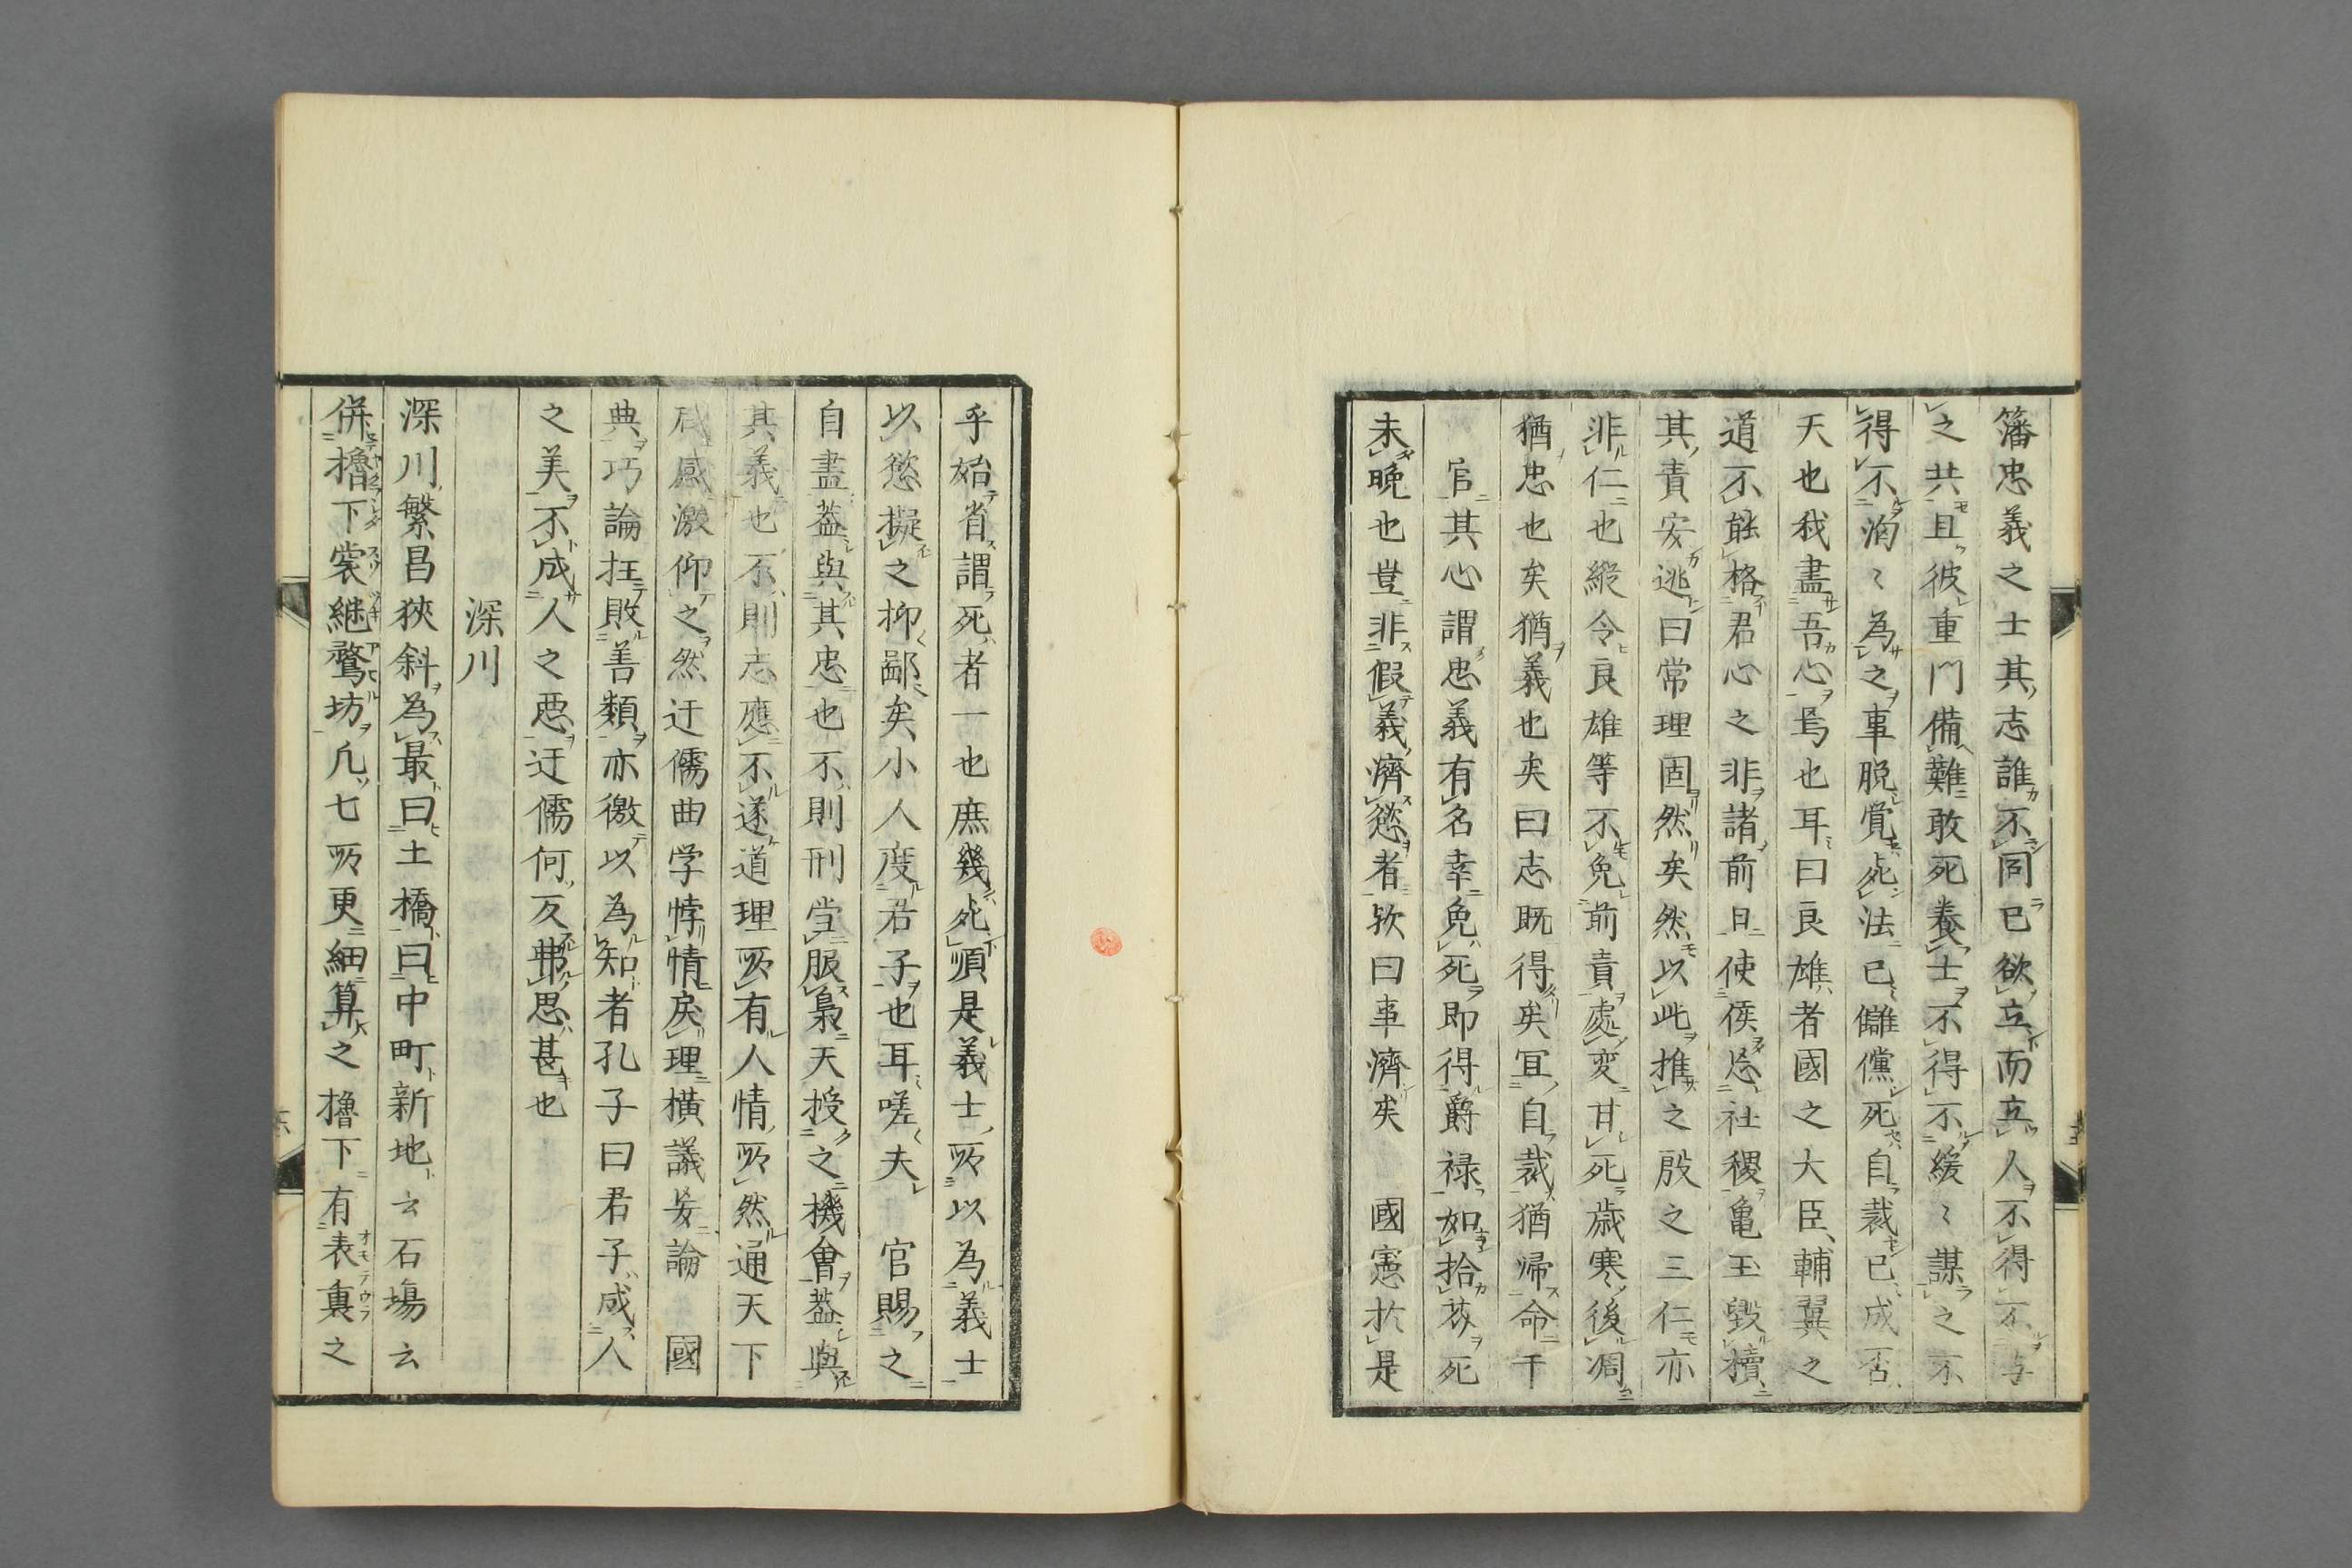 籓忠義之士其志誰不同已欲立而立人不得不与
之共且彼重門備難敢死養士不得不緩〻謀之不
得不消〻為之車脱覚死法已讎儻死自裁已成否
天也我盡吾心焉也耳曰良雄者國之大臣輔翼之
道不能格君心之非諸前日使侯忘社稷亀玉毀櫝
其責安逃曰常理固然矣然以此推之殷之三仁亦
非仁也縱令良雄等不免前責處変甘死歳寒後凋
猶忠也矣猶義也矣曰志既得矣冝自裁猶帰命于
官其心謂忠義有名幸免死即得爵禄如拾芥死
未晩也豈非假義濟慾者欤曰事濟矣 國憲於是
乎始省謂死者一也庶幾死順是義士所以為義士
以慾擬之抑鄙矣小人度君子也耳嗟夫 官賜之
自盡葢與其忠也不則刑当服梟天授之機會葢與
其義也不則志應不遂道理所有人情所然通天下
咸感激仰之然迂儒曲学悖情戻理橫議妄論 國
典巧論抂敗善類亦徼以為知者孔子曰君子成人
之美不成人之悪迂儒何反弗思甚也
深川
深川繁昌狹斜為最曰土橋曰中町新地云石塲云
併櫓下裳継鶩坊凢七所更細算之櫓下有表裏之